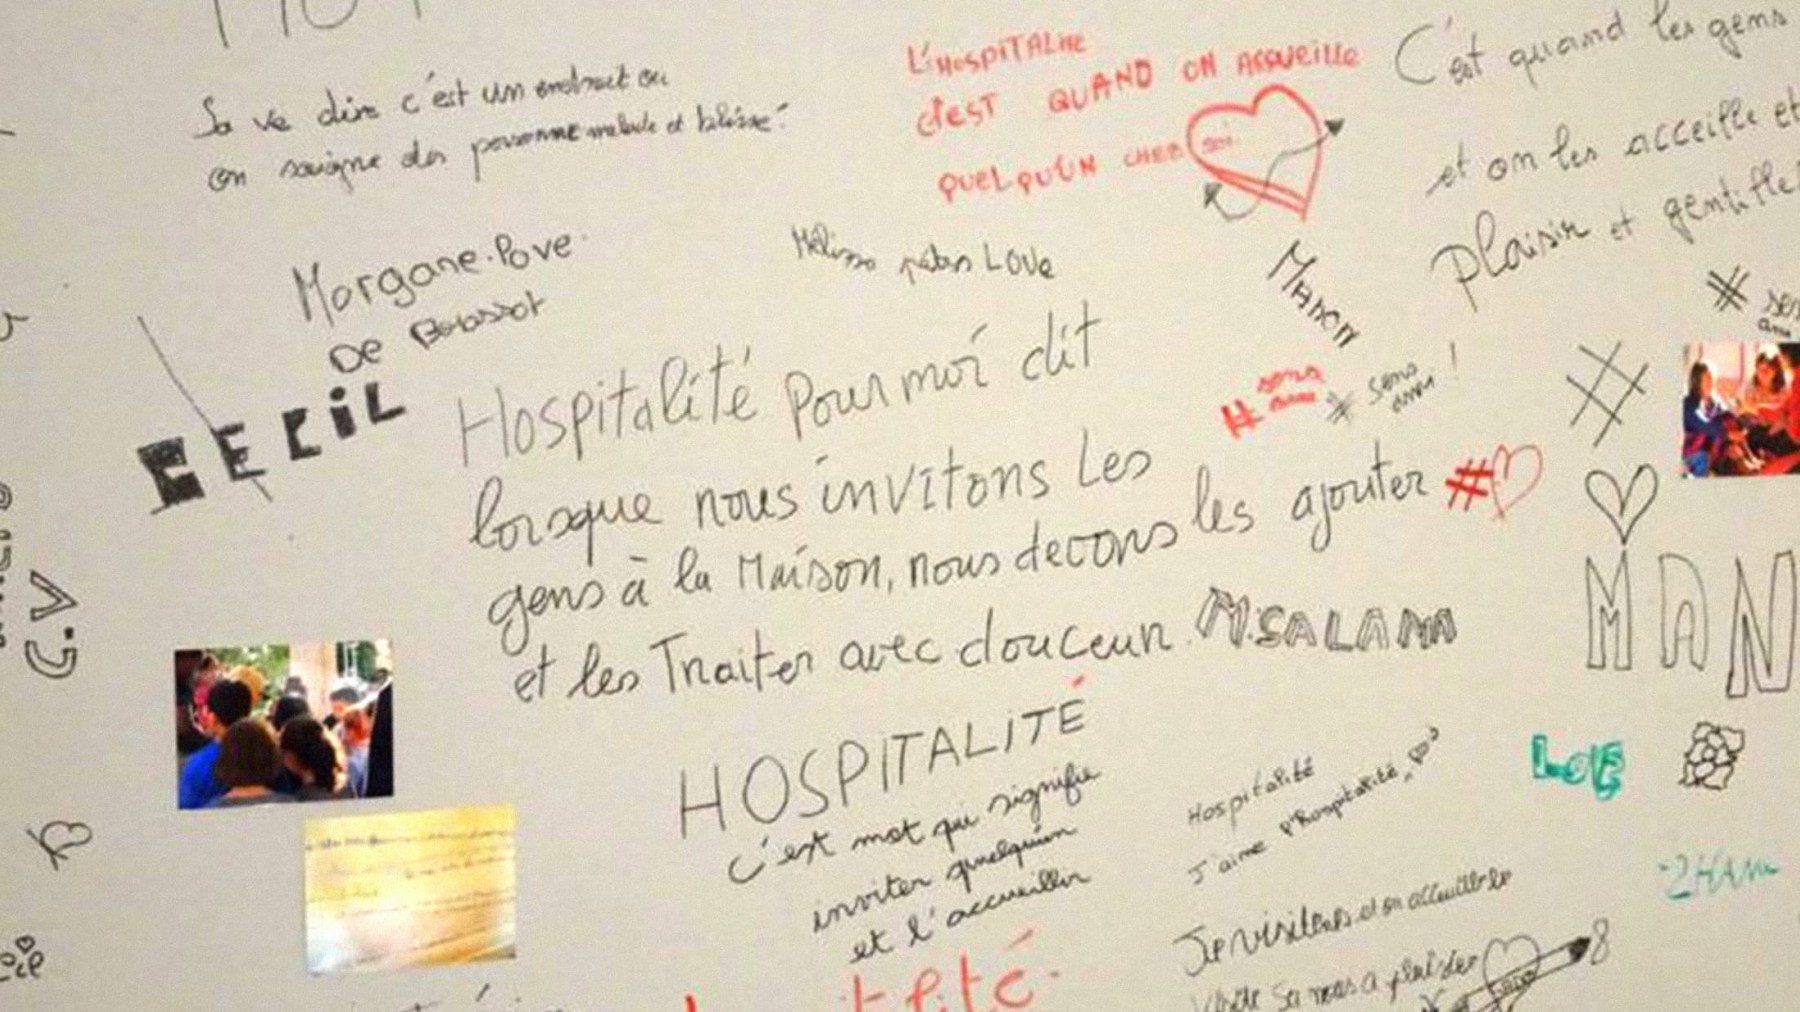 Sa ve dire c'est un endroit ou
on soigne des personne malade et blésse.
L'HOSPITALITE
C'EST QUAND ON ACCUEILLE
QUELQU'UN CHEB SOI.
C'est quand les gens
et on les acceille et
plaisir et gentille
Morgane.Pove
De
Mélissa LOVE
Manon
CECIL
# sens
# sens
# sens
Hospitalité pour moi dit
lorsque nous invitons les
gens à la Maison, nous devons les ajouter
et les Traiter avec douceur.
#
#
M.SALAMA
MAN
G.V
HOSPITALITÉ
c'est mot qui signifie
inviter quelqu'un
et l'accueillir
Hospitalité
J'aime l'hospitalité
LOVE
et on
nous a
8